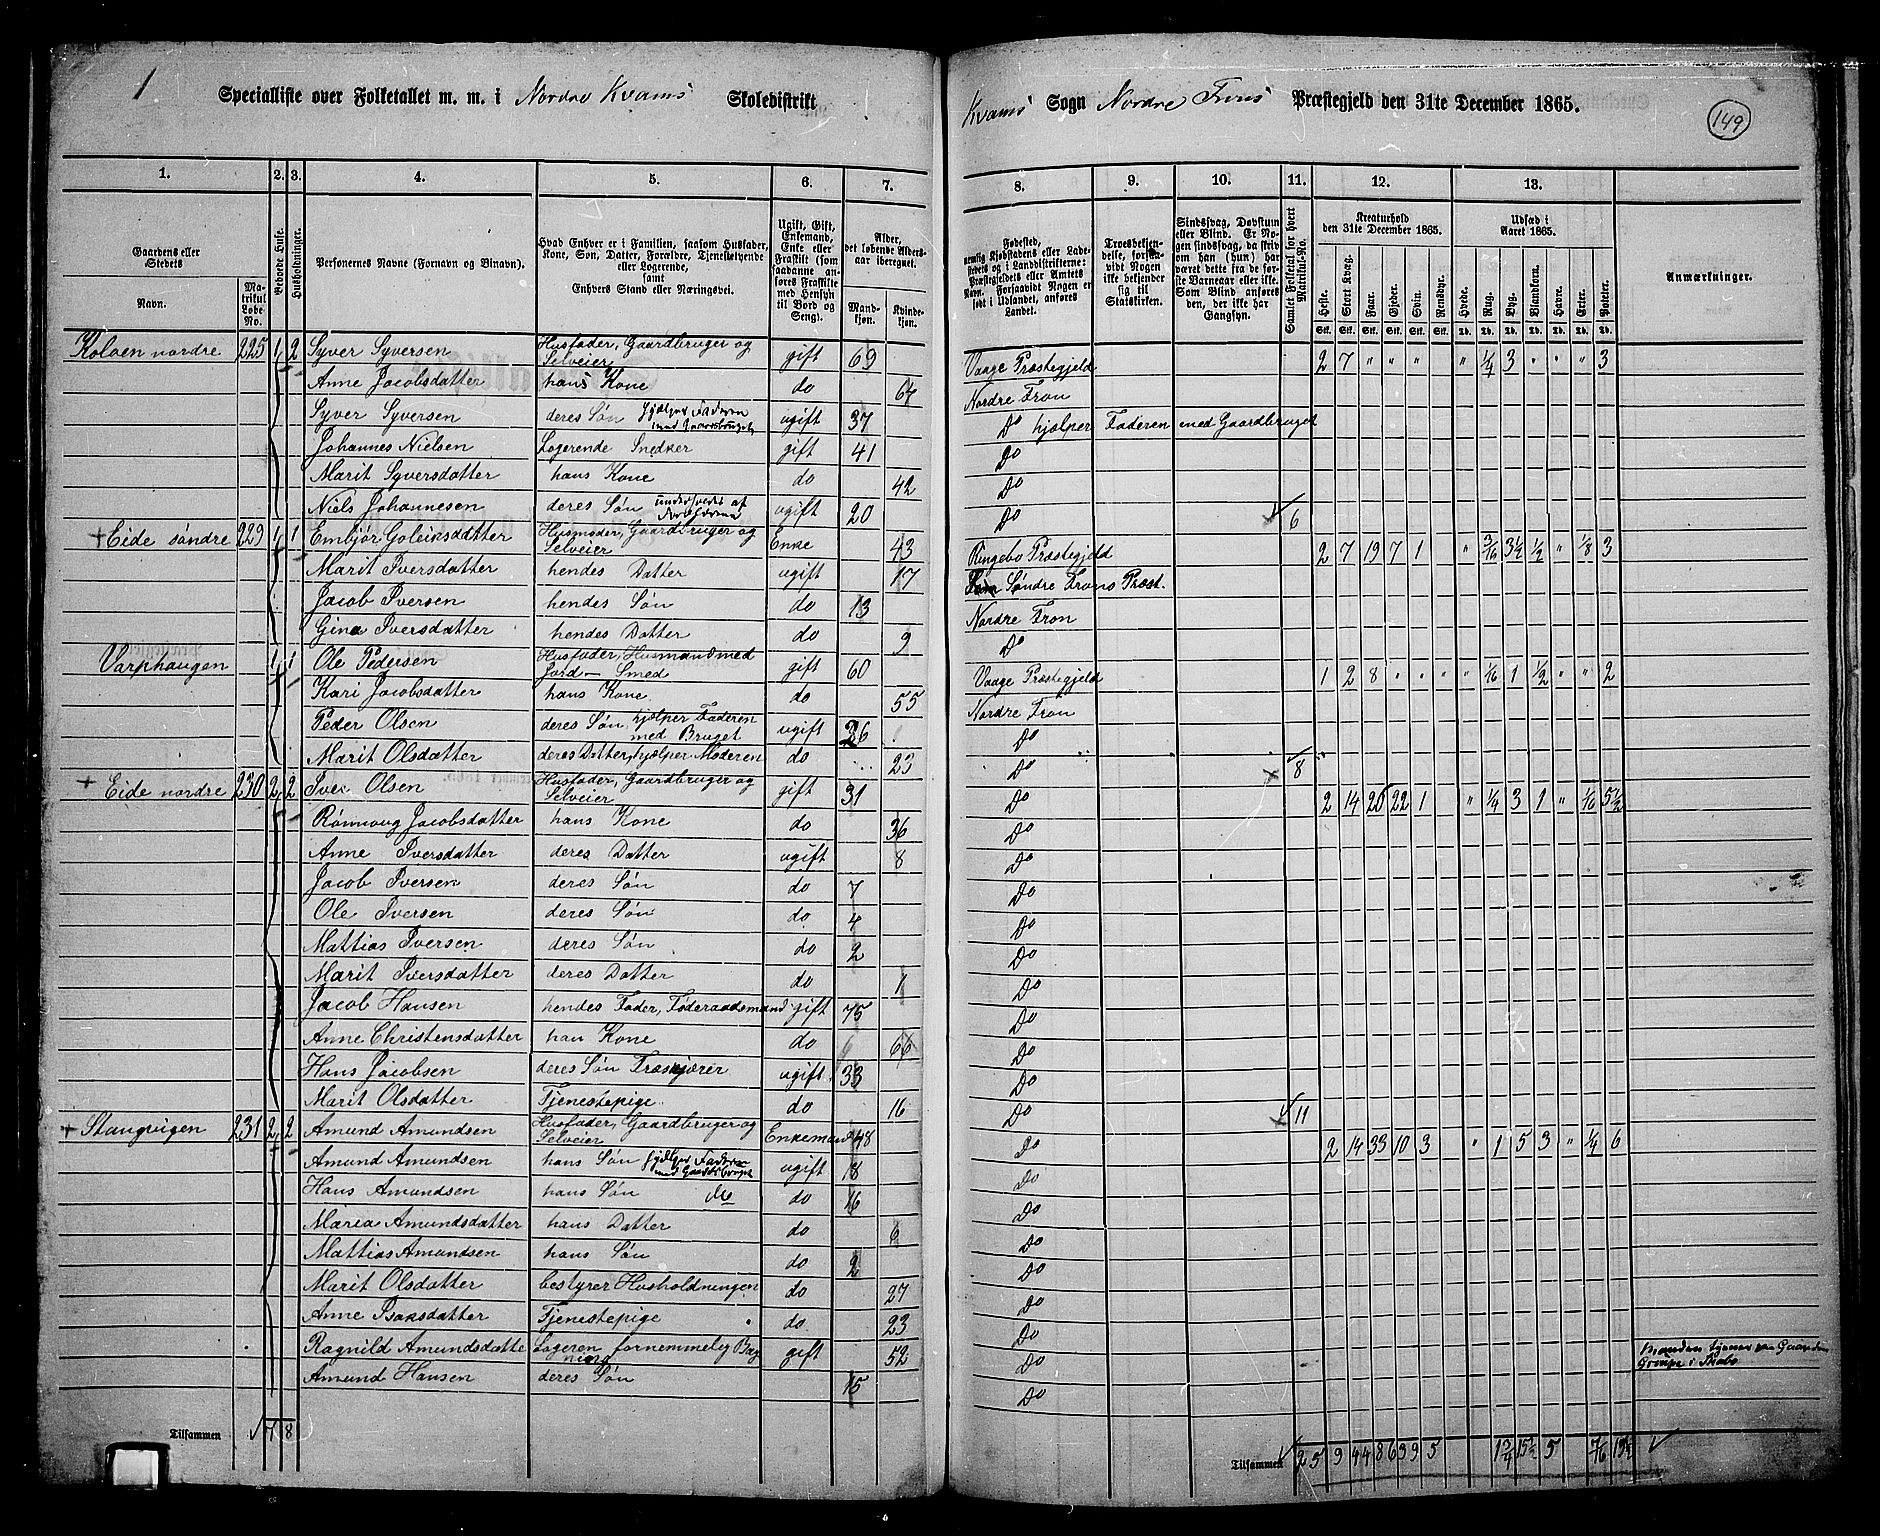 1
Specialliste over Folketallet m. m. i Nordre Kvams Skoledistrikt
Kvams Sogn Nordre Frons Præstegjeld den 31te December 1865.
149
1. 2. 3. 4. 5. 6. 7. 8. 9. 10. 11. 12. 13.
Gaardens eller Stedets
Navn. Matrikul Løbe-No.
Beboede Huse.
Husholdninger.
Personernes Navne (Fornavn og Binavn).
Hvad Enhver er i Familien, saasom Husfader, Kone, Søn, Datter, Forældre, Tjenestetyende eller Logerende, samt Enhvers Stand eller Næringsvei.
Ugift, Gift, Enkemand, Enke eller Fraskilt (som saadanne anføres Fraskilte med Hensyn til Bord og Seng).
Alder, det løbende Aldersaar iberegnet.
Mandkjøn. Kvindekjøn.
Fødested, nemlig Kjøbstadens eller Ladestedets og i Landdistrikterne: Præstegjeldets eller Amtets Navn. Forsaavidt Nogen er født i Udlandet, anføres Landet.
Troesbekjendelse, forsaavidt Nogen ikke bekjender sig til Statskirken.
Sindssvag, Døvstum eller Blind. Er Nogen sindssvag, da skrives om han (hun) har været dette fra de første Barneaar eller ikke. Som Blind anføres den, der ikke har Gangsyn.
Samlet Folketal for hvert Matrikul-No.
Kreaturhold den 31te December 1865.
Heste. Stort Kvæg. Faar. Gjeder. Svin. Rensdyr.
Udsæd i Aaret 1865.
Hvede. Rug. Byg. Blandkorn. Havre. Erter. Poteter.
Anmærkninger.
Koloen nordre 225 1 2 Syver Syversen Husfader, Gaardbruger og Selveier gift 69 Vaage Præstegjeld 2 7 " " " " 1/4 3 " " " 3
Anne Jacobsdatter hans Kone do 64 Nordre Fron
Syver Syversen deres Søn hjælper Faderen med Gaardsbruget ugift 37 Do hjælper Faderen med Gaardbruget
Johannes Nielsen Logerende Snedker gift 41 Do
Marit Syversdatter hans Kone do 42 Do
Niels Johannesen deres Søn understøttet af ugift 20 Do 6
+ Eide søndre 229 1 1 Embjør Goleiksdatter Husmoder, Gaardbruger og Selveier Enke 43 Ringebo Præstegjeld 2 7 19 7 1 " 3/16 3 1/2 1/2 " 1/8 3
Marit Iversdatter hendes Datter ugift 17 Søndre Frons Præst.
Jacob Iversen hendes Søn do 13 Nordre Fron
Gina Iversdatter hendes Datter do 9 Do
Varphaugen 1 1 Ole Pedersen Husfader, Husmand med Jord – Smed gift 60 Vaage Præstegjeld 1 2 8 " " " " 1/16 1 1/2 " " 2
Kari Jacobsdatter hans Kone do 55 Nordre Fron
Peder Olsen deres Søn hjælper Faderen med Bruget ugift 26 Do
Marit Olsdatter deres Datter, hjælper Moderen do 23 Do 8
+ Eide nordre 230 2 2 Iver Olsen Husfader, Gaardbruger og Selveier gift 31 Do 2 14 25 22 1 " 1/4 3 1 " 1/16 5 1/2
Rønnoug Jacobsdatter hans Kone do 36 Do
Anne Iversdatter deres Datter ugift 8 Do
Jacob Iversen deres Søn do 7 Do
Ole Iversen deres Søn do 4 Do
Mattias Iversen deres Søn do 2 Do
Marit Iversdatter deres Datter do 1 Do
Jacob Hansen hendes Fader, Føderaadsmand gift 75 Do
Anne Christensdatter han Kone do 66 Do
Hans Jacobsen deres Søn Træskjærer ugift 33 Do
Marit Olsdatter Tjenestepige do 16 Do 11
+ Stangvigen 231 2 2 Amund Amundsen Husfader, Gaardbruger og Selveier Enkemand 48 Do 2 14 33 10 3 " 1 5 3 " 1/4 6
Amund Amundsen hans Søn hjælper Faderen med Gaardsbruget ugift 18 Do
Hans Amundsen hans Søn do do 16 Do
Maria Amundsdatter hans Datter do 6 Do
Mattias Amundsen hans Søn do 2 Do
Marit Olsdatter bestyrer Husholdningen do 27 Do
Anne Isaksdatter Tjenestepige do 23 Do
Ragnild Amundsdatte Logeren fornemmelig Bagning gift 52 Do Manden tjener paa Gaarden
Amund Hansen deres Søn 15 Do
Tilsammen 7 8
Tilsammen 25 9 44 86 39 5 1 3/4 15 1/2 5 7/16 19 1/2